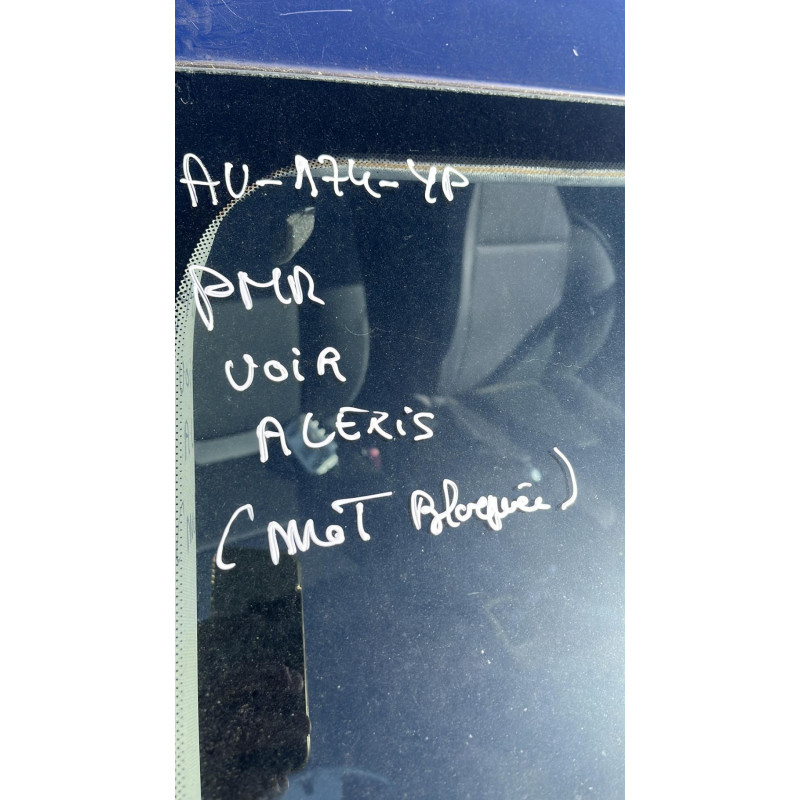 AU-174-YP
PMR
VOIR
ACERIS
(MOT Bloquée)